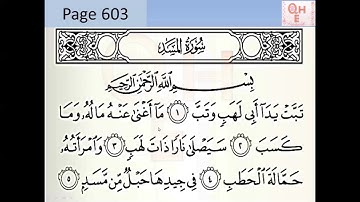 Page 603
QH
E
سُورَةُ المَسَدِ
بِسْمِ ٱللَّهِ ٱلرَّحْمَٰنِ ٱلرَّحِيمِ
تَبَّتْ يَدَآ أَبِى لَهَبٍ وَتَبَّ ١ مَآ أَغْنَىٰ عَنْهُ مَالُهُۥ وَمَا
كَسَبَ ٢ سَيَصْلَىٰ نَارًا ذَاتَ لَهَبٍ ٣ وَٱمْرَأَتُهُۥ
حَمَّالَةَ ٱلْحَطَبِ ٤ فِى جِيدِهَا حَبْلٌ مِّن مَّسَدٍۭ ٥